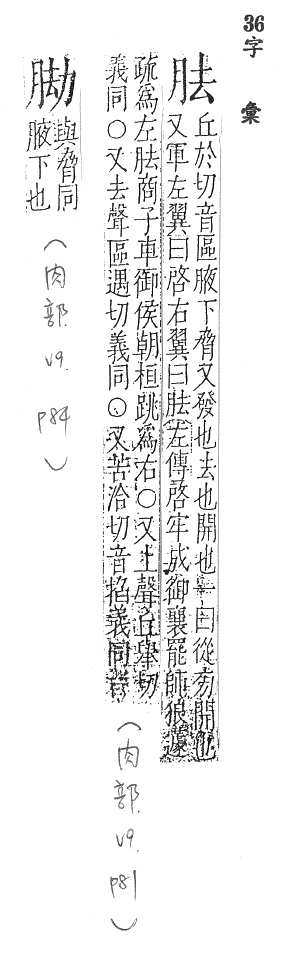 36字彙
胠 丘於切音區腋下脅又發也去也開也一曰從旁開也
又軍左翼曰啓右翼曰胠左傳啓牢成御襄罷師狼蘧
疏爲左胠商子車御侯朝桓跳爲右○又上聲丘舉切
義同○又去聲區遇切義同○又苦洽切音掐義同
(肉部.V9.P81)
脇 與脅同
腋下也
(肉部.V9.P84)